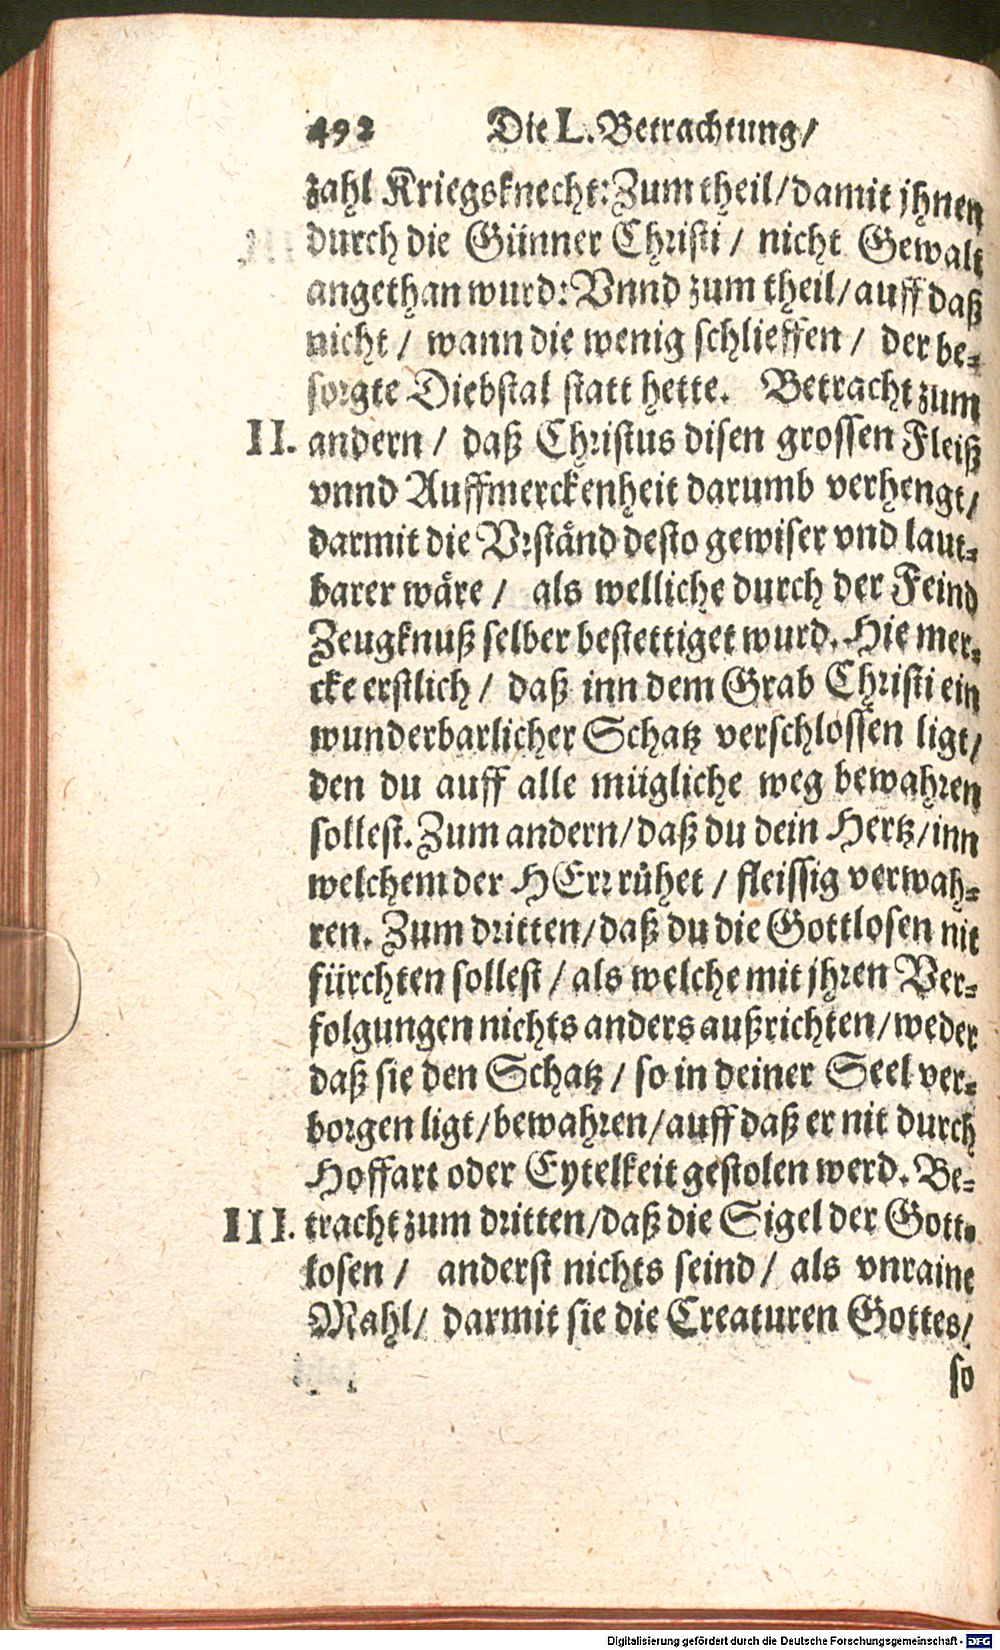 492 Die L. Betrachtung/
zahl Kriegsknecht: Zum theil/damit jhnen
durch die Günner Christi/ nicht Gewalt
angethan wurd: Vnnd zum theil/auff daß
nicht/ wann die wenig schlieffen/ der be-
sorgte Diebstal statt hette. Betracht zum
II. andern/ daß Christus disen grossen Fleiß
vnnd Auffmerckenheit darumb verhengt/
darmit die Vrständ desto gewiser vnd laut-
barer wäre/ als welliche durch der Feind
Zeugknuß selber bestettiget wurd. Hie mer-
cke erstlich/ daß inn dem Grab Christi ein
wunderbarlicher Schatz verschlossen ligt/
den du auff alle mügliche weg bewahren
sollest. Zum andern/daß du dein Hertz/inn
welchem der HErr růhet/ fleissig verwah-
ren. Zum dritten/daß du die Gottlosen nit
fürchten sollest/als welche mit jhren Ver-
folgungen nichts anders außrichten/weder
daß sie den Schatz/ so in deiner Seel ver-
borgen ligt/bewahren/auff daß er nit durch
Hoffart oder Eytelkeit gestolen werd. Be-
III. tracht zum dritten/daß die Sigel der Gott-
losen/ anderst nichts seind/ als vnraine
Mahl/ darmit sie die Creaturen Gottes/
so
Digitalisierung gefördert durch die Deutsche Forschungsgemeinschaft - DFG